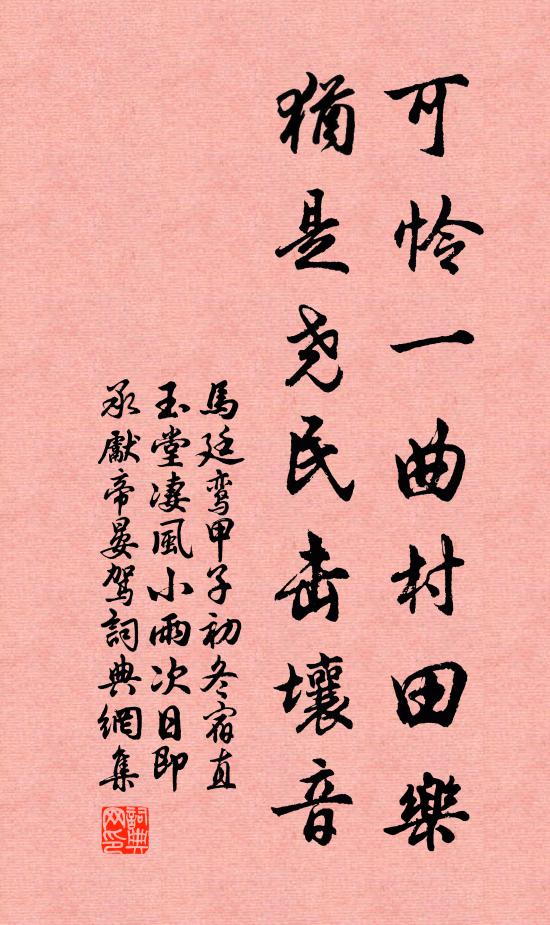 可怜一曲村田樂
猶是尧民击壤音
馬廷鸾甲子初冬宿直
玉堂凄風小雨次日即
承獻帝晏驾詞典網集
詞典网印